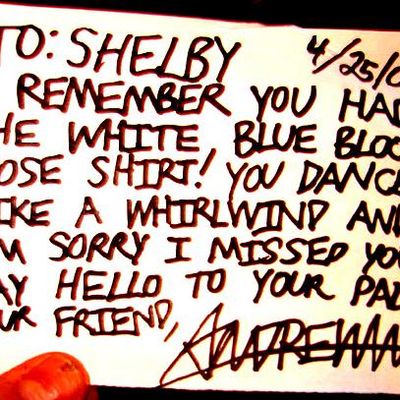 TO: SHELBY 4/25/0
I REMEMBER YOU HAD
THE WHITE, BLUE BLOO
OSE SHIRT! YOU DANCE
IKE A WHIRLWIND AND
'M SORRY I MISSED YOU
AY HELLO TO YOUR PA
UR FRIEND,